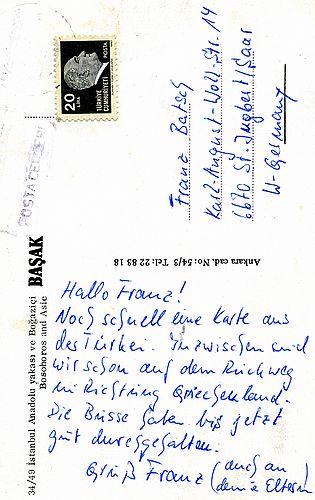 20
LİRA
TÜRKİYE
CUMHURİYETİ
POSTA
Franz Batsch
Karl-August-Woll-Str. 14
6670 St. Ingbert/Saar
W-Germany
Ankara cad. No: 54/3 Tel: 22 83 18
BAŞAK
34/49 İstanbul Anadolu yakası ve Boğaziçi
Bosphoros and Asie
Hallo Franz!
Noch schnell eine Karte aus
des Türkei. Inzwischen sind
wir schon auf dem Rückweg
in Richtung Griechenland.
Die Busse haben bis jetzt
gut durchgehalten.
Gruß Franz (auch an
deine Eltern